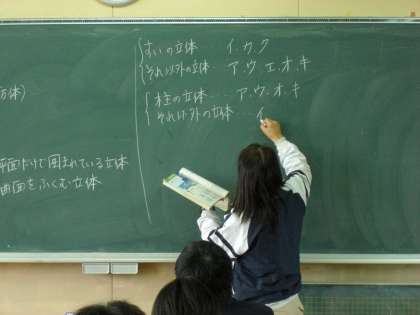 方体)
平面だけで囲まれている立体
曲面をふくむ立体
すいの立体 イ.カ.ク
それ以外の立体‥ ア.ウ.エ.オ.キ
柱の立体‥‥ ア.ウ.オ.キ
それ以外の立体‥‥イ